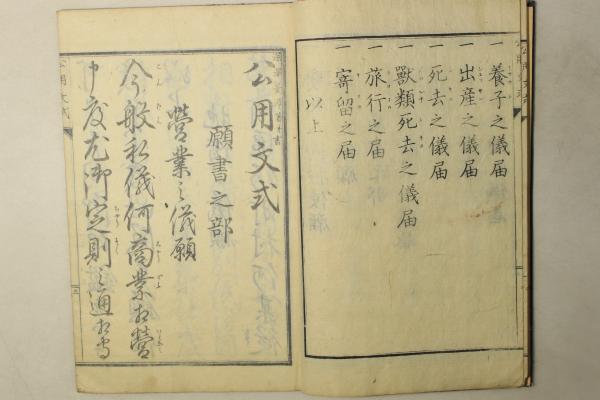 一 養子之儀届
一 出産之儀届
一 死去之儀届
一 獸類死去之儀届
一 旅行之届
一 寄留之届
以上
公用文式
願書之部
営業之儀願
今般私儀何商業相營
申度尤御定則之通相当
公用文式